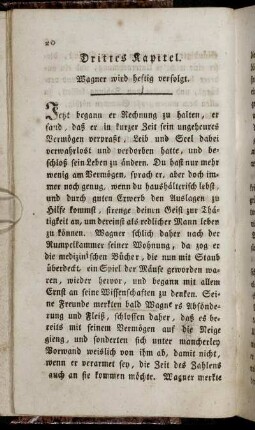 20
Drittes Kapitel.
Wagner wird heftig verfolgt.
Jetzt begann er Rechnung zu halten, er
fand, daß er in kurzer Zeit sein ungeheures
Vermögen verpraßt, Leib und Seel dabei
verwahrlost und verdorben hatte, und be-
schloß sein Leben zu ändern. Du hast nur mehr
wenig am Vermögen, sprach er, aber doch im-
mer noch genug, wenn du haushälterisch lebst,
und durch guten Erwerb den Auslagen zu
Hilfe kommst, strenge deinen Geist zur Thä-
tigkeit an, um dereinst als redlicher Mann leben
zu können. Wagner schlich daher nach der
Rumpelkammer seiner Wohnung, da zog er
die medizinischen Bücher, die nun mit Staub
überdeckt, ein Spiel der Mäuse geworden wa-
ren, wieder hervor, und begann mit allem
Ernst an seine Wissenschaften zu denken. Sei-
ne Freunde merkten bald Wagners Absönde-
rung und Fleiß, schlossen daher, daß es be-
reits mit seinem Vermögen auf die Neige
gieng, und sonderten sich unter mancherley
Vorwand weislich von ihm ab, damit nicht,
wenn er verarmet sey, die Zeit des Zahlens
auch an sie kommen möchte. Wagner merkte